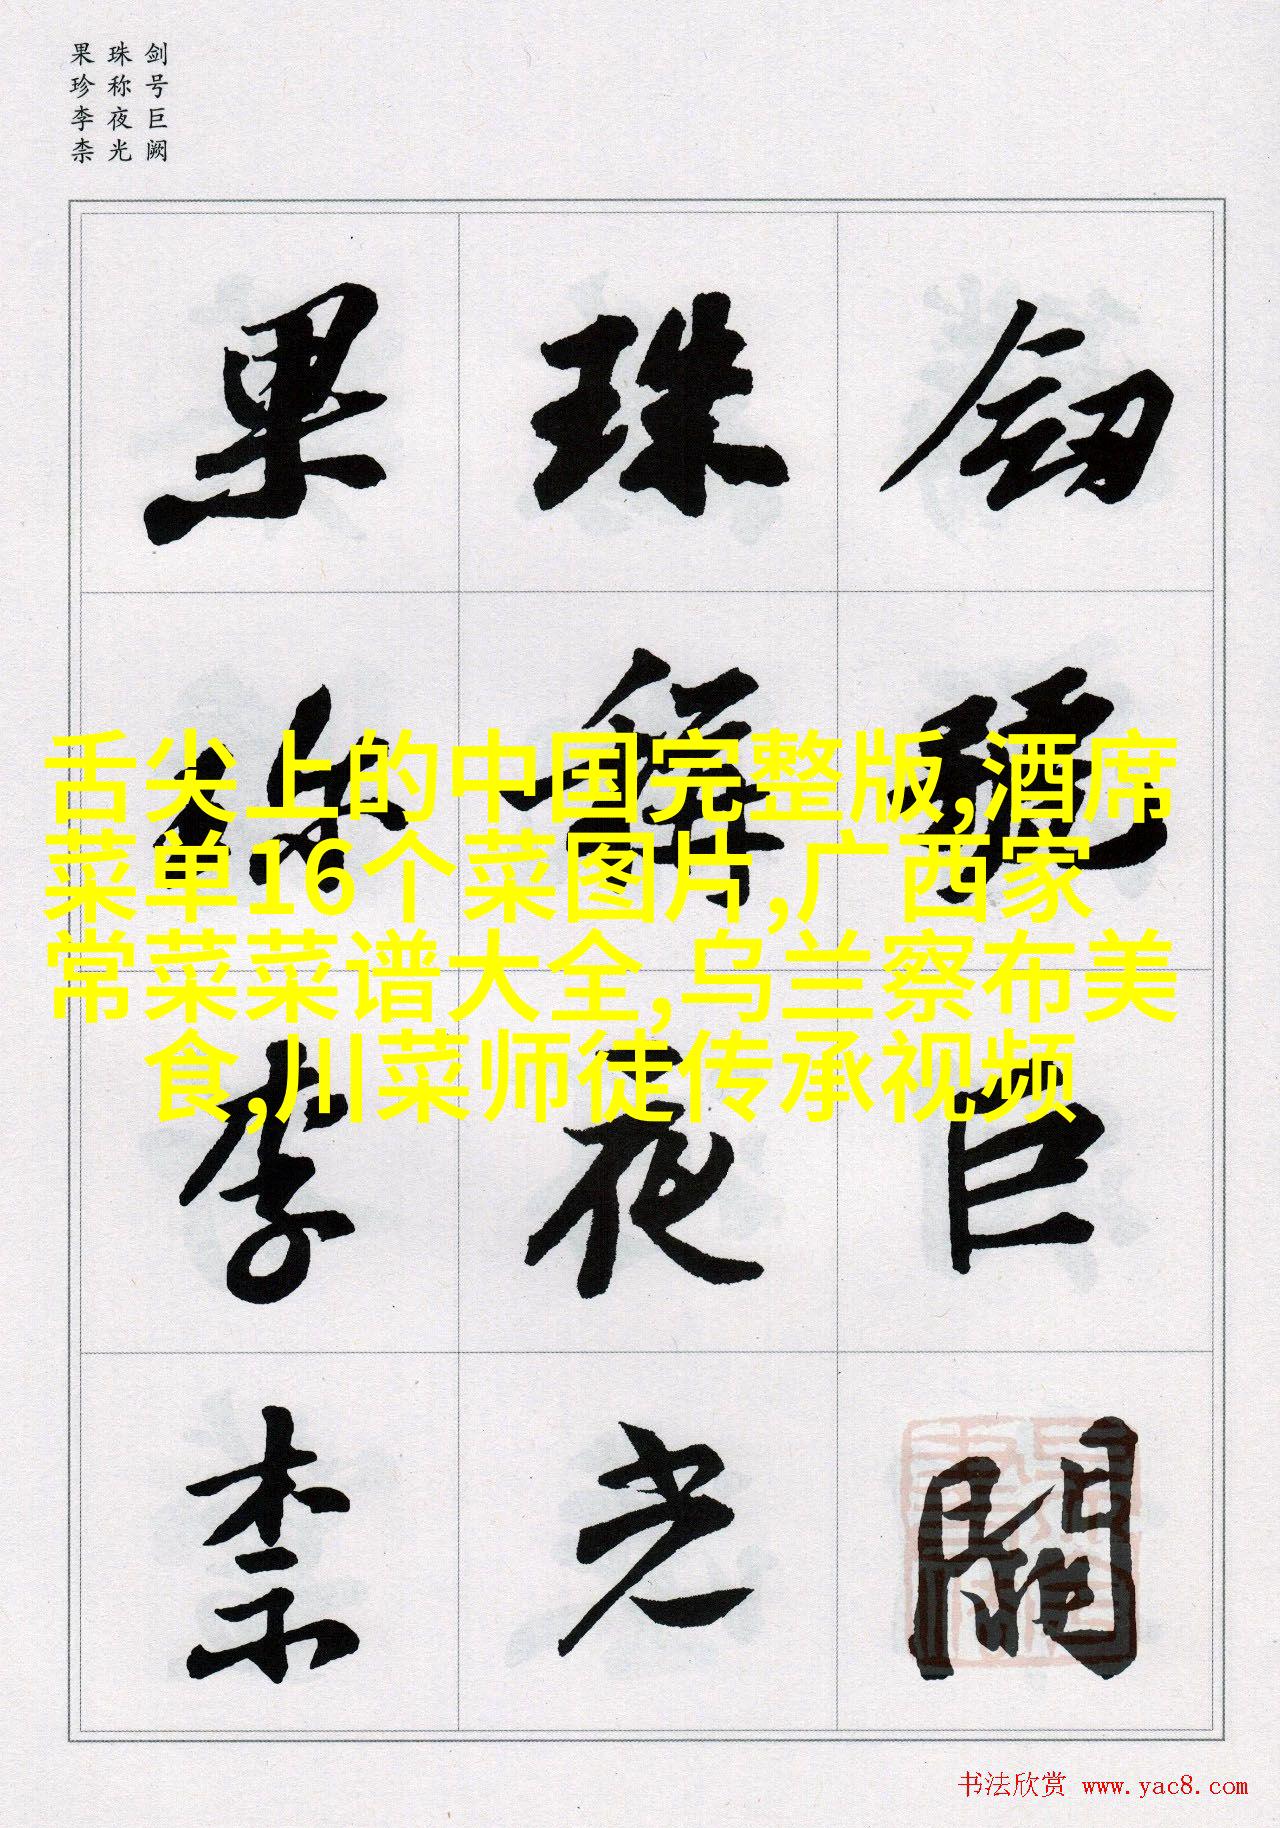 剑号巨阙
珠称夜光
果珍李柰
劍號巨闕
珠稱夜光
果珍李柰
舌尖上的中国完整版,酒席
菜单16个菜图片,广西家
常菜菜谱大全,乌兰察布美
食,川菜师徒传承视频
书法欣赏 www.yac8.com